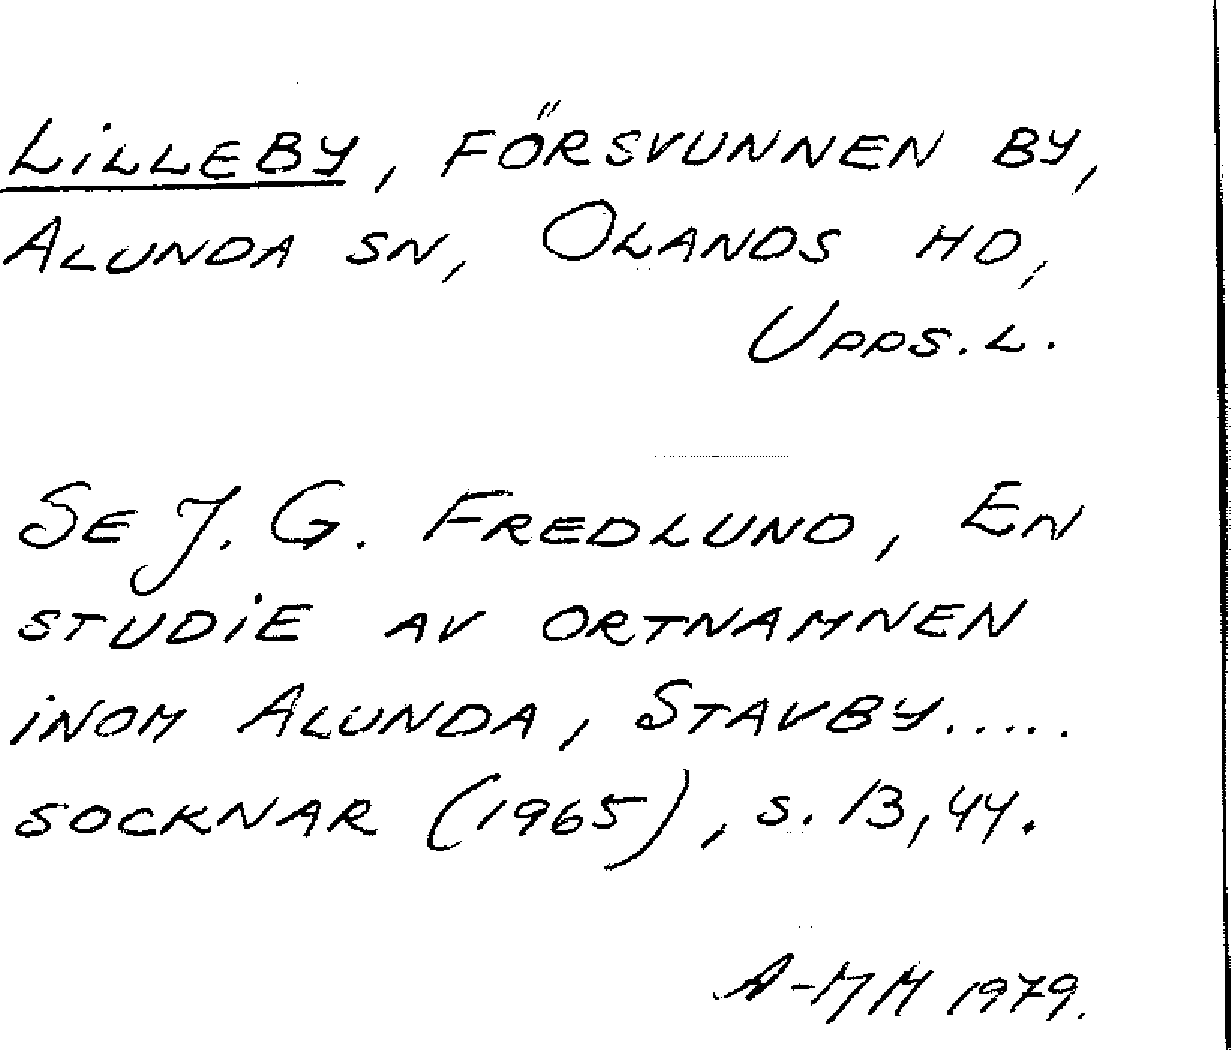 LILLEBY, FÖRSVUNNEN BY,
ALUNDA SN, OLANDS HD,
UPPS. L.
SE J. G. FREDLUND, EN
STUDIE AV ORTNAMNEN
INOM ALUNDA, STAVBY.....
SOCKNAR (1965), S. 13, 44.
A-MM 1979.